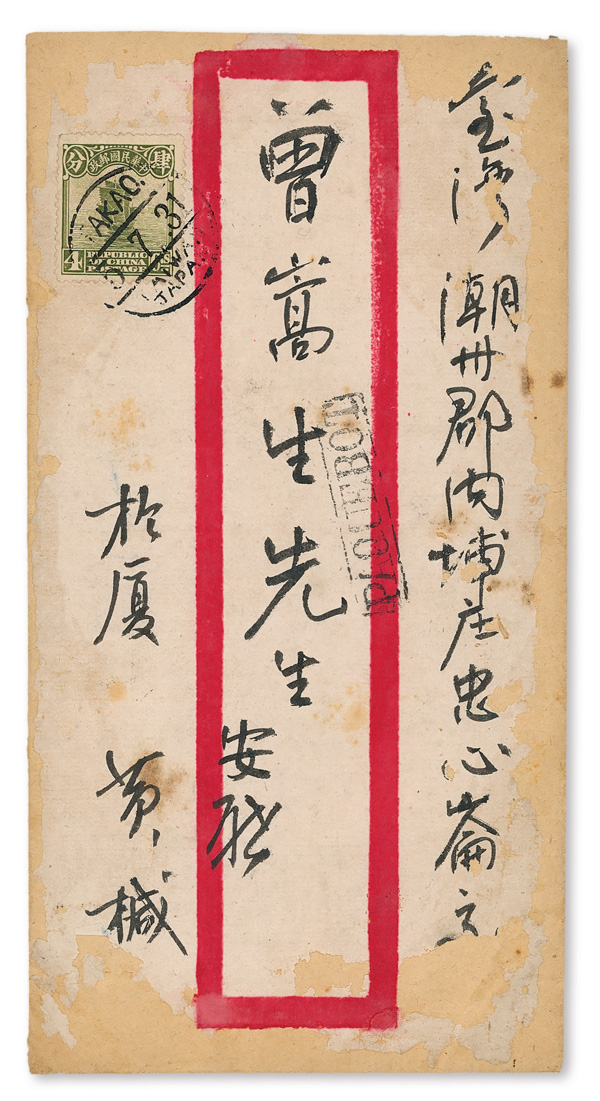 臺灣潮州郡内埔庄忠心崙立
曾嵩生先生
安啟
於廈 黃椷
中華民國郵政
肆 分
4
REPUBLIC
OF CHINA
POSTAGE
TAKAO
7 31
TAIWAN
JAPAN
PAQUEBOT